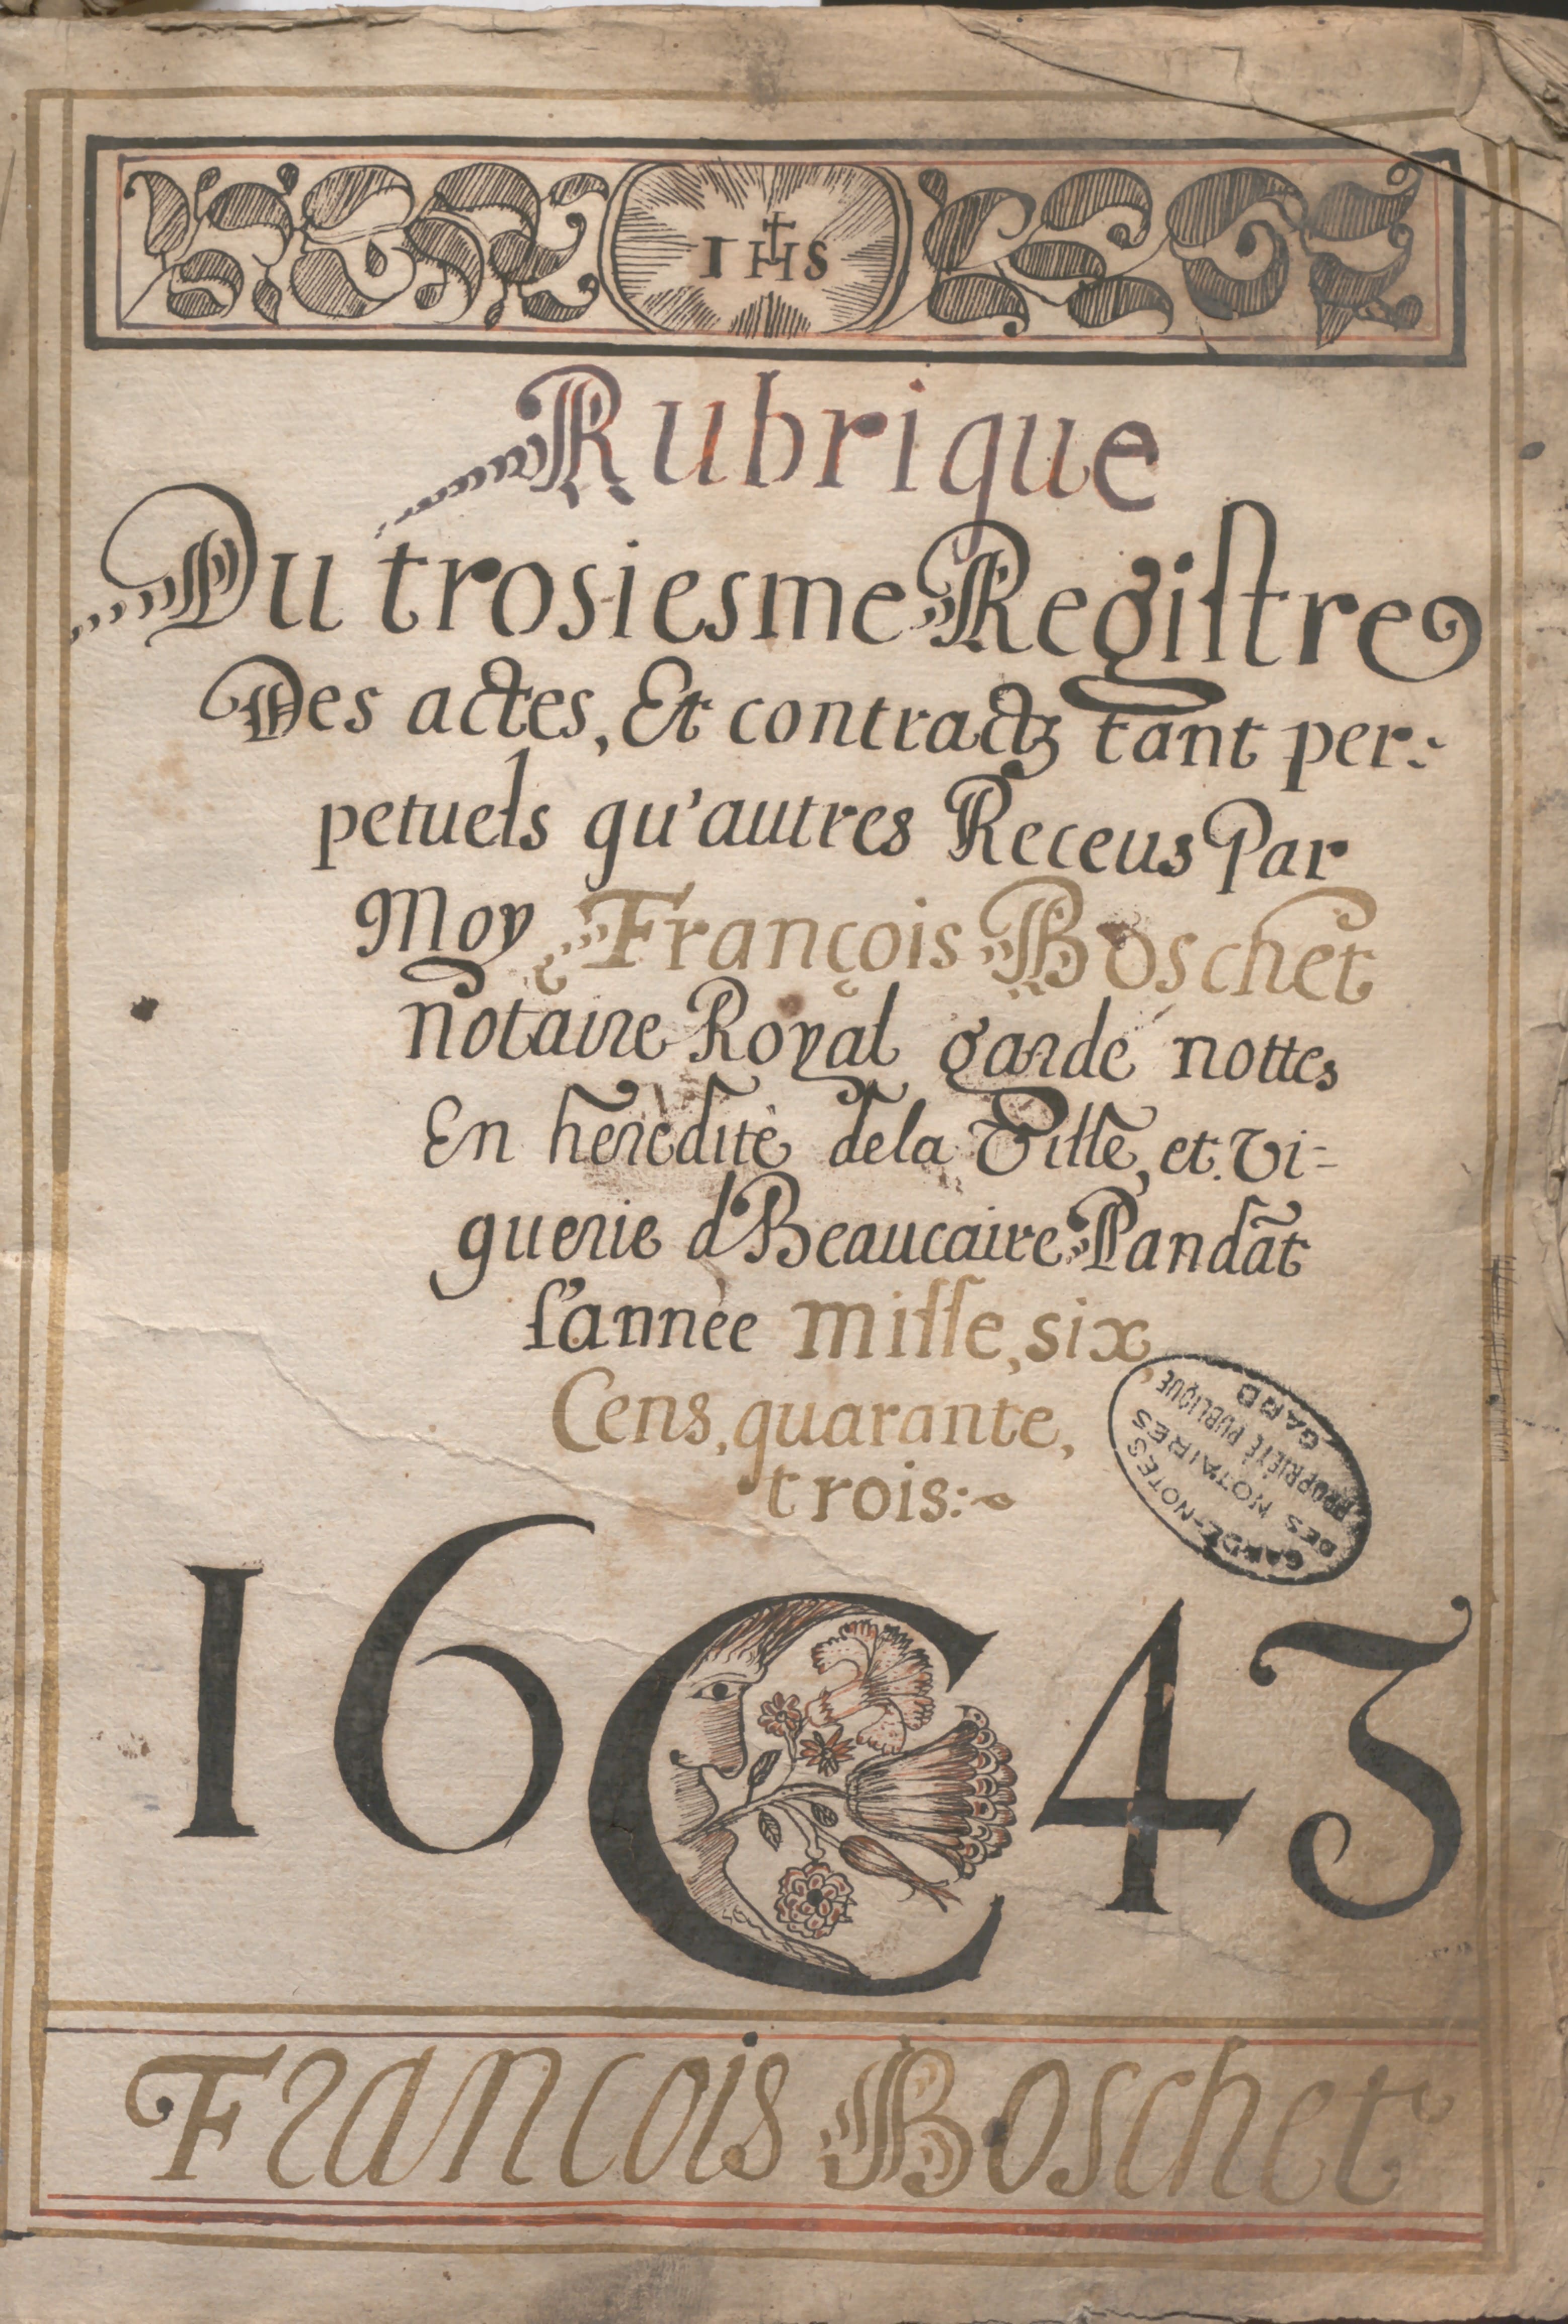 IHS
Rubrique
Du trosiesme Regiſtre
Des actes, Et contractz tant per:-
petuels qu'autres Receus Par
Moy François Boschet
notaire Royal garde nottes
En heredité dela Ville, et Vi-
guerie d Beaucaire Pandãt
l'année mille, six,
Cens, quarante,
trois:~
GARDE-NOTES
DES NOTAIRES
PROPRIÉTÉ PUBLIQUE
GARD
16C43
Francois Boschet